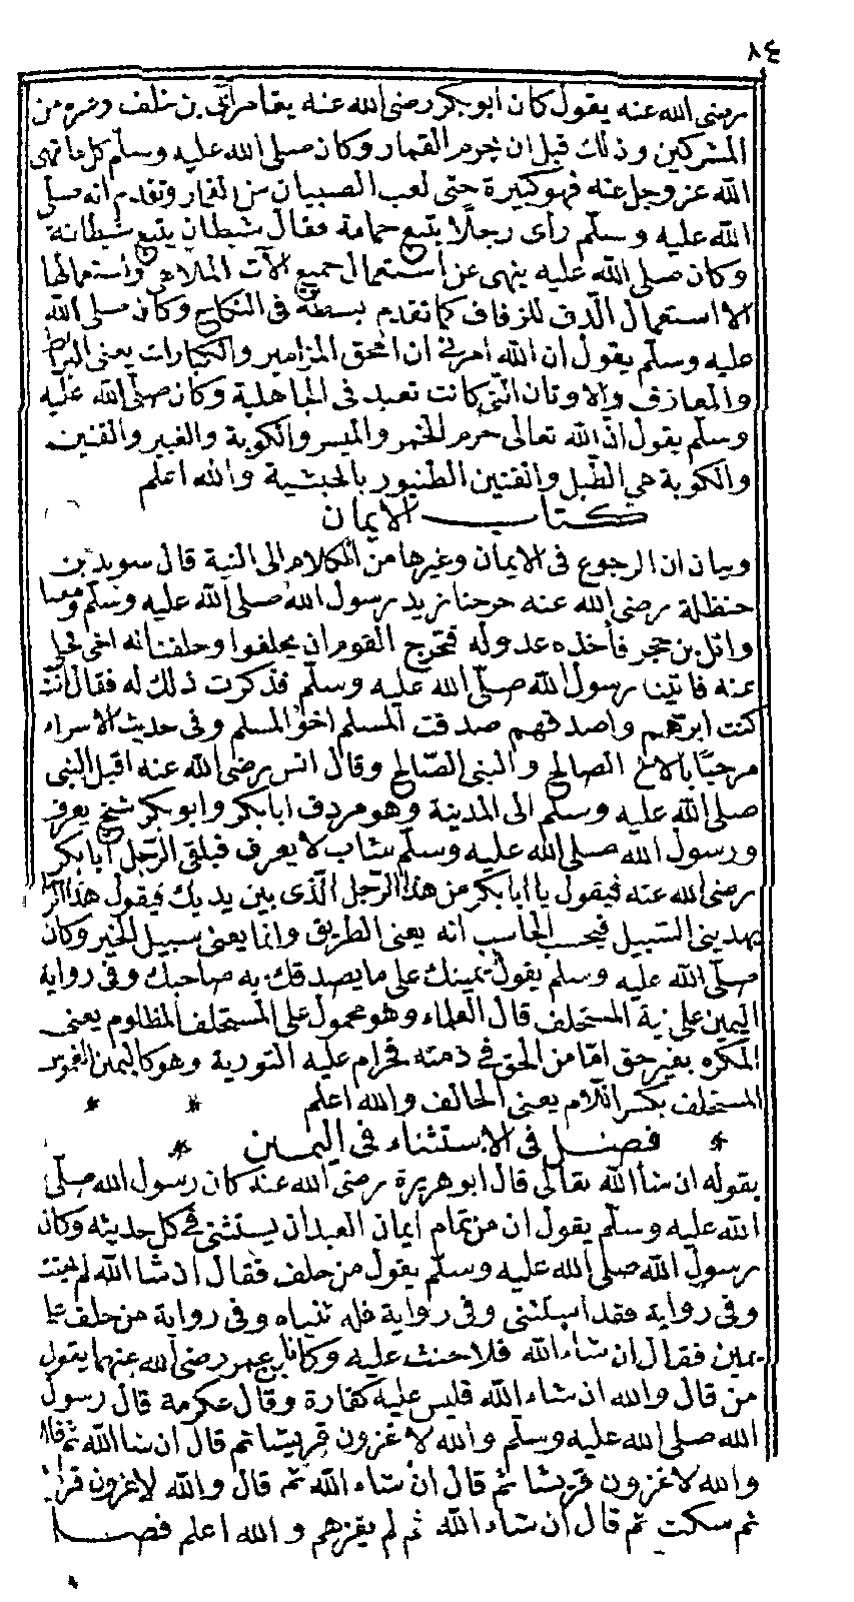 ٨٤
رضى الله عنه يقول كان ابو بكر رضى الله عنه يقامر ابى بن خلف وغيره من
المشركين وذلك قبل ان يحرم القمار وكان صلى الله عليه وسلم كل ما نهى
الله عز وجل عنه فهو كبيرة حتى لعب الصبيان من القمار وتقدم انه صلى
الله عليه وسلم راى رجلا يتبع حمامة فقال شيطان يتبع شيطانة
وكان صلى الله عليه ينهى عن استعمال جميع الآت الملاهى واستماعها
الا استعمال الدف للزفاف كما تقدم بسطه فى النكاح وكان صلى الله
عليه وسلم يقول ان الله امرنى ان امحق المزامير والكبارات يعنى البرابط
والمعازف والاوثان التى كانت تعبد فى الجاهلية وكان صلى الله عليه
وسلم يقول ان الله تعالى حرم الخمر والميسر والكوبة والغبير والقنين
والكوبة هي الطبل والقنين الطنبور بالحبشية والله اعلم
كتاب الايمان
وبيان ان الرجوع فى الايمان وغيرها من الكلام الى النية قال سويد بن
حنظلة رضى الله عنه خرجنا نريد رسول الله صلى الله عليه وسلم ومعنا
وائل بن حجر فأخذه عدو له فتحرج القوم ان يحلفوا وحلفت انه اخى فخلى
عنه فاتينا رسول الله صلى الله عليه وسلم فذكرت ذلك له فقال انت
كنت ابرهم واصدقهم صدقت المسلم اخو المسلم وفى حديث الاسراء
مرحبا بالاخ الصالح والنبى الصالح وقال انس رضى الله عنه اقبل النبى
صلى الله عليه وسلم الى المدينة وهو مردف ابا بكر وابو بكر شيخ يعرف
ورسول الله صلى الله عليه وسلم شاب لا يعرف فيلقى الرجل ابا بكر
رضى الله عنه فيقول يا ابا بكر من هذا الرجل الذى بين يديك فيقول هذا الرجل
يهدينى السبيل فيحسب الحاسب انه يعنى الطريق وانما يعنى سبيل الخير وكان
صلى الله عليه وسلم يقول يمينك على ما يصدقك به صاحبك وفى رواية
اليمين على نية المستحلف قال العلماء وهو محمول على المستحلف المظلوم يعنى
المكره بغير حق اما من الحق فى ذمته فحرام عليه التورية وهو كاليمين الغموس
المستحلف بكسر اللام يعنى الحالف والله اعلم
فصل فى الاستثناء فى اليمين
بقوله ان شا الله تعالى قال ابو هريرة رضى الله عنه كان رسول الله صلى
الله عليه وسلم يقول ان من تمام ايمان العبد ان يستثنى فى كل حديثه وكان
رسول الله صلى الله عليه وسلم يقول من حلف فقال ان شا الله لم يحنث
وفى رواية فقد استثنى وفى رواية فله ثنياه وفى رواية من حلف على
يمين فقال ان شاء الله فلا حنث عليه وكان ابن عمر رضى الله عنهما يقول
من قال والله ان شاء الله فليس عليه كفارة وقال عكرمة قال رسول
الله صلى الله عليه وسلم والله لاغزون قريشا ثم قال ان شا الله ثم قال
والله لاغزون قريشا ثم قال ان شاء الله ثم قال والله لاغزون قريشا
ثم سكت ثم قال ان شاء الله ثم لم يغزهم والله اعلم فصل